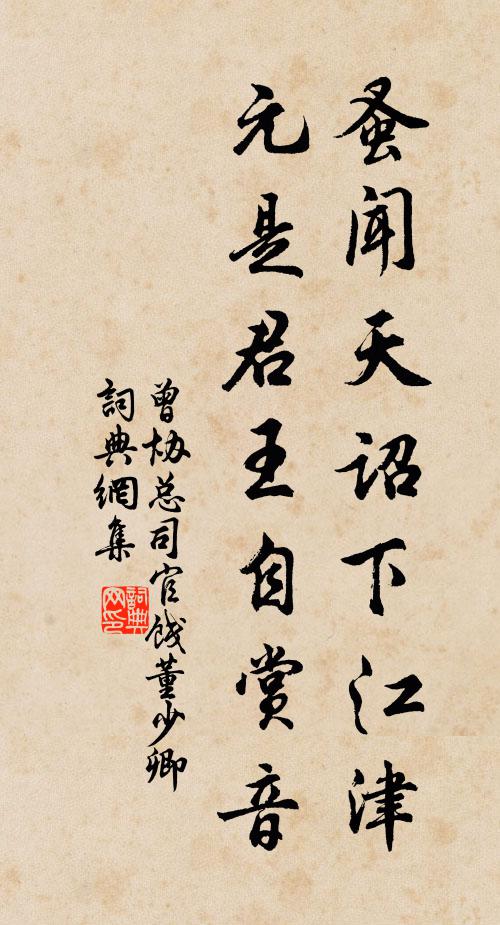 蚤闻天诏下江津
元是君王自赏音
曾协总司官饯董少卿
词典網集
詞典
网印